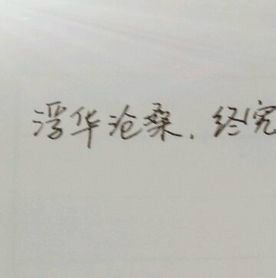 浮华沧桑.终究